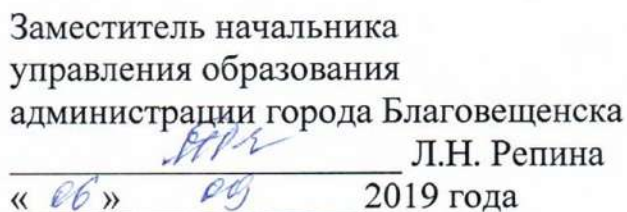 Заместитель начальника
управления образования
администрации города Благовещенска
Л.Н. Репина
« 06 » 09 2019 года